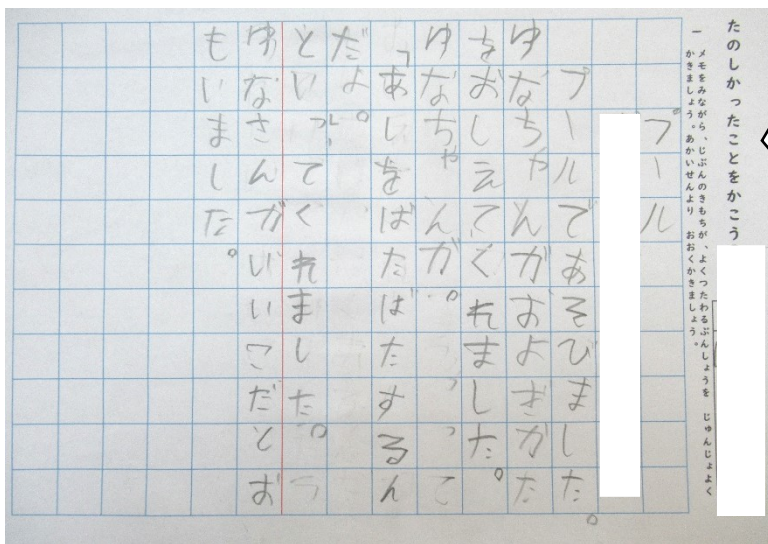 たのしかったことをかこう
一 メモをみながら、じぶんのきもちが、よくつたわるぶんしょうを じゅんじょよく
かきましょう。あかいせんより おおくかきましょう。
プール
プールであそびました。
ゆなちゃんがおよぎかた
をおしえてくれました。
ゆなちゃんが。
「あしをばたばたするん
だよ。」
といってくれました。
ゆなさんがいいこだとお
もいました。